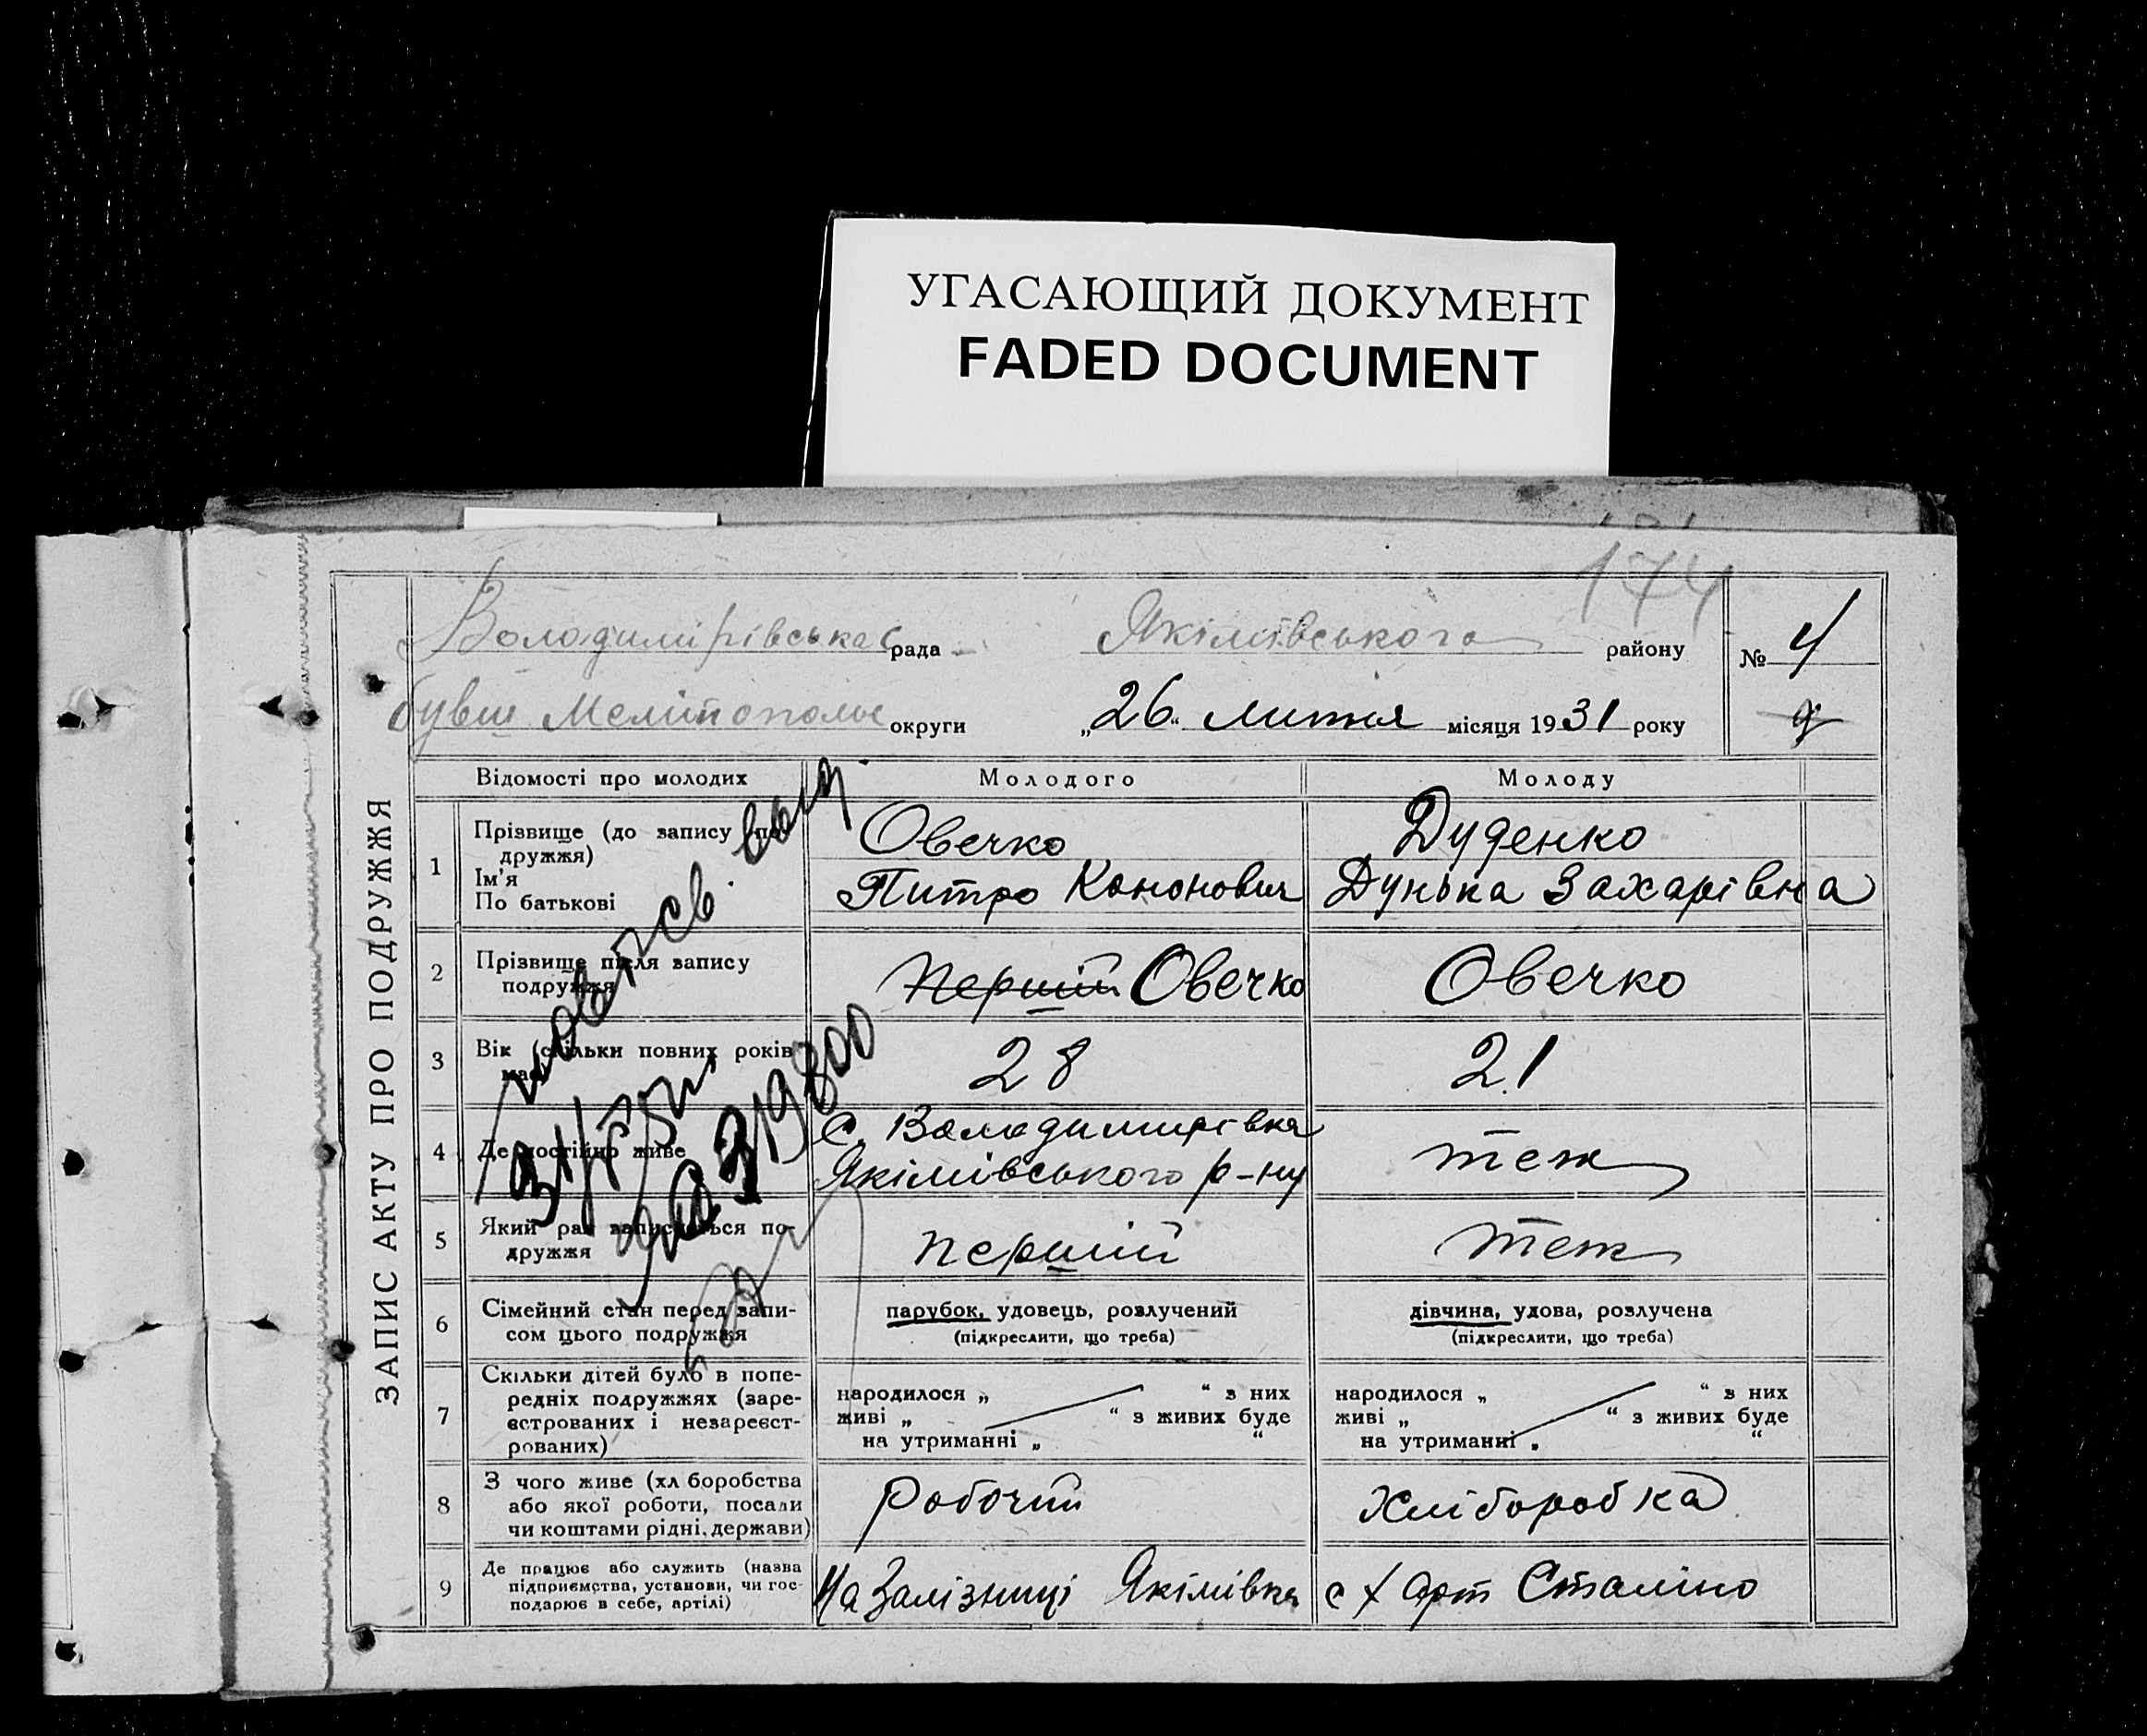 УГАСАЮЩИЙ ДОКУМЕНТ
FADED DOCUMENT
174
ЗАПИС АКТУ ПРО ПОДРУЖЖЯ
Володимірівська с рада Якімівського району № 4
бувш Мелітопольс округи „26“ Лютня місяця 1931 року
Відомості про молодих Молодого Молоду
1 Прізвище (до запису по-
дружжя) Овечко Дуденко
Ім'я
По батькові Питро Кононович Дунька Захарівна
2 Прізвище після запису
подружжя Перший Овечко Овечко
3 Вік (скільки повних років
має) 28 21
4 Де постійно живе С. Володимирівка
Якімівського р-ну теж
5 Який раз записується по-
дружжя перший теж
6 Сімейний стан перед запи-
сом цього подружжя
парубок, удовець, розлучений
(підкреслити, що треба)
дівчина, удова, розлучена
(підкреслити, що треба)
7 Скільки дітей було в попе-
редніх подружжях (заре-
єстрованих і незареєст-
рованих)
народилося „ “ з них
живі „ “ з живих буде
на утриманні „ “
народилося „ “ з них
живі „ “ з живих буде
на утриманні „ “
8 З чого живе (хл боробства
або якої роботи, посади
чи коштами рідні, держави)
Робочий Хліборобка
9 Де працює або служить (назва
підприємства, установи, чи гос-
подарює в себе, артілі)
На Залізниці Якімівка с х Арт Сталіно